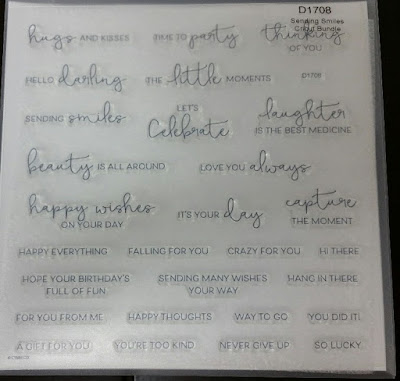 D1708
Sending Smiles
Cricut Bundle
hugs AND KISSES
TIME TO party
thinking
OF YOU
HELLO darling
THE little MOMENTS
D1708
SENDING smiles
LET'S
Celebrate
laughter
IS THE BEST MEDICINE
beauty IS ALL AROUND
LOVE YOU always
happy wishes
ON YOUR DAY
IT'S YOUR day
capture
THE MOMENT
HAPPY EVERYTHING
FALLING FOR YOU
CRAZY FOR YOU
HI THERE
HOPE YOUR BIRTHDAY'S
FULL OF FUN
SENDING MANY WISHES
YOUR WAY
HANG IN THERE
FOR YOU FROM ME
HAPPY THOUGHTS
WAY TO GO
YOU DID IT!
A GIFT FOR YOU
YOU'RE TOO KIND
NEVER GIVE UP
SO LUCKY